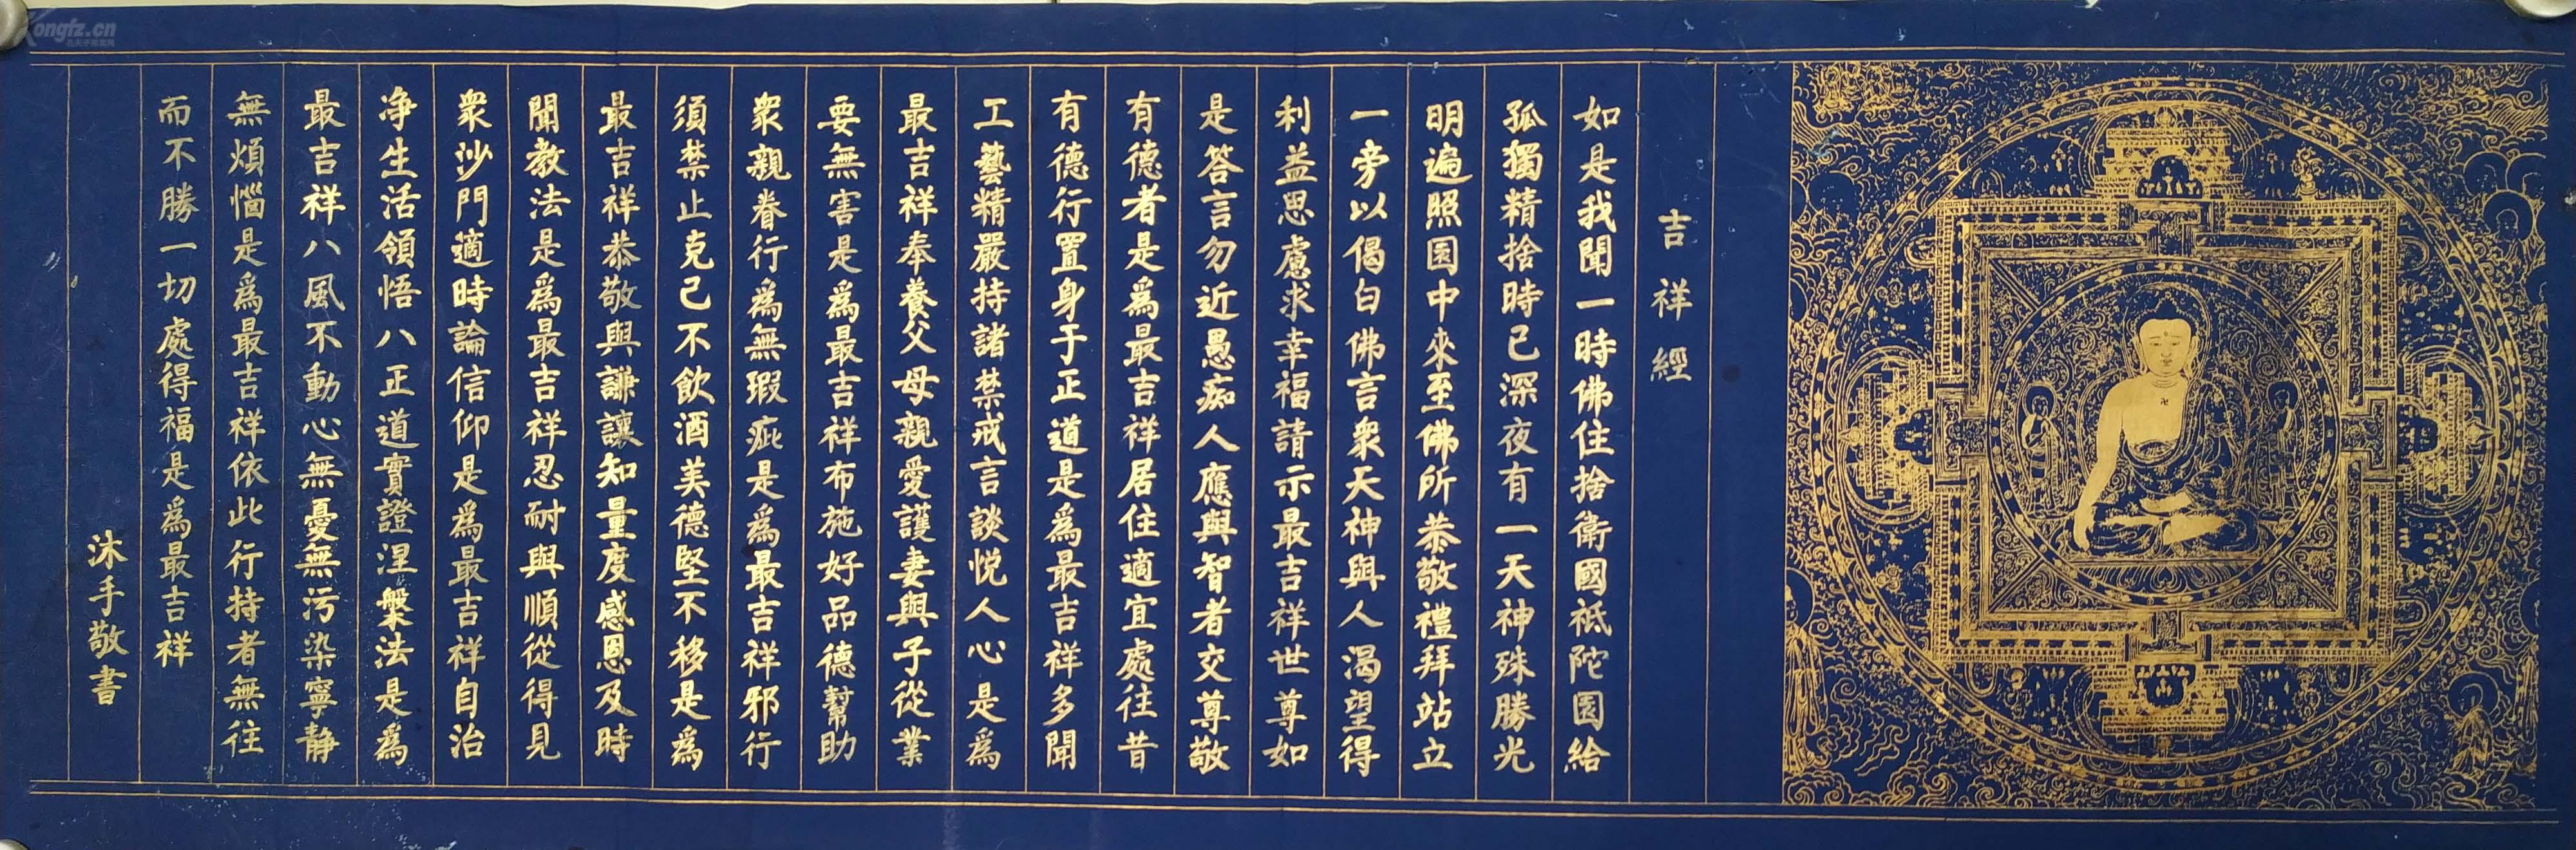 吉祥經
如是我聞一時佛住捨衛國祗陀園給
孤獨精捨時已深夜有一天神殊勝光
明遍照園中來至佛所恭敬禮拜站立
一旁以偈白佛言衆天神與人渴望得
利益思慮求幸福請示最吉祥世尊如
是答言勿近愚痴人應與智者交尊敬
有德者是爲最吉祥居住適宜處往昔
有德行置身于正道是爲最吉祥多聞
工藝精嚴持諸禁戒言談悅人心是爲
最吉祥奉養父母親愛護妻與子從業
要無害是爲最吉祥布施好品德幫助
衆親眷行爲無瑕疵是爲最吉祥邪行
須禁止克己不飲酒美德堅不移是爲
最吉祥恭敬與謙讓知量度感恩及時
聞教法是爲最吉祥忍耐與順從得見
衆沙門適時論信仰是爲最吉祥自治
净生活領悟八正道實證涅槃法是爲
最吉祥八風不動心無憂無污染寧靜
無煩惱是爲最吉祥依此行持者無往
而不勝一切處得福是爲最吉祥
沐手敬書
Kongfz.cn
孔夫子旧书网